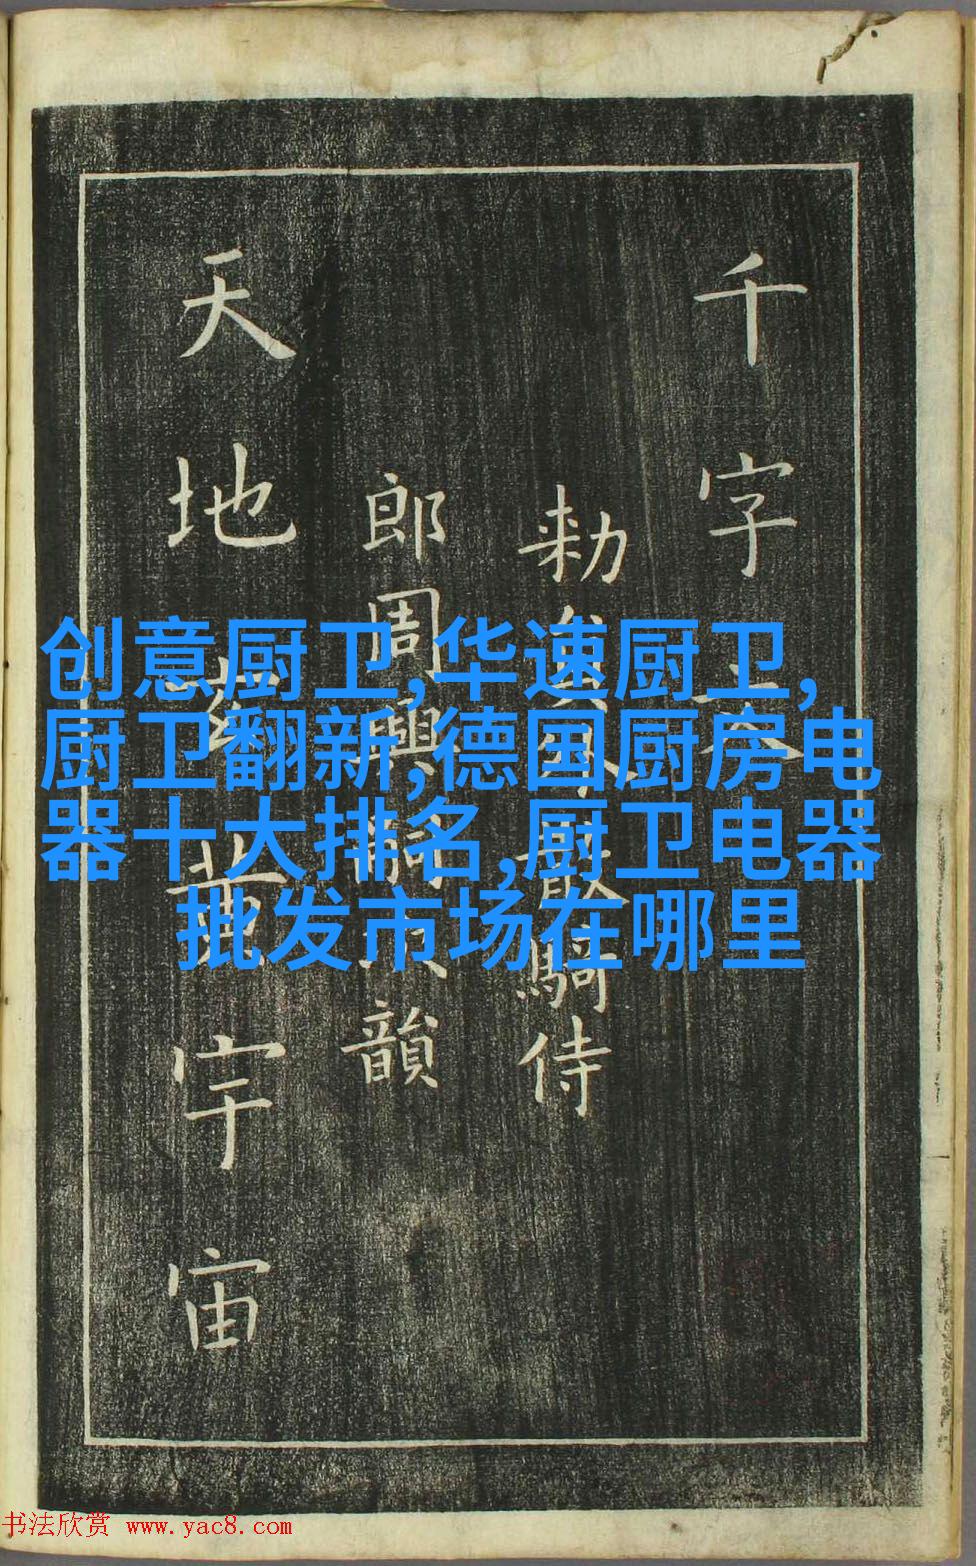 千字文
勑員外散騎侍
郎周興嗣次韻
天地玄黃宇宙
创意厨卫,华速厨卫,
厨卫翻新,德国厨房电
器十大排名,厨卫电器
批发市场在哪里
书法欣赏 www.yac8.com